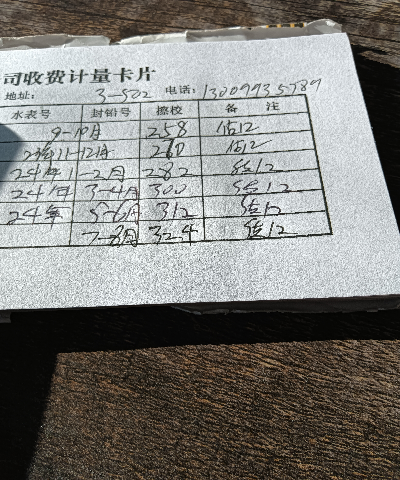 司收费计量卡片
地址: 3-502 电话: 13009935789
水表号 封铅号 擦校 备 注
9-10月 258 估12
11-12月 270 估12
24年1-2月 282 估12
24年 3-4月 300 估12
24年 5-6月 312 估12
7-8月 324 估12